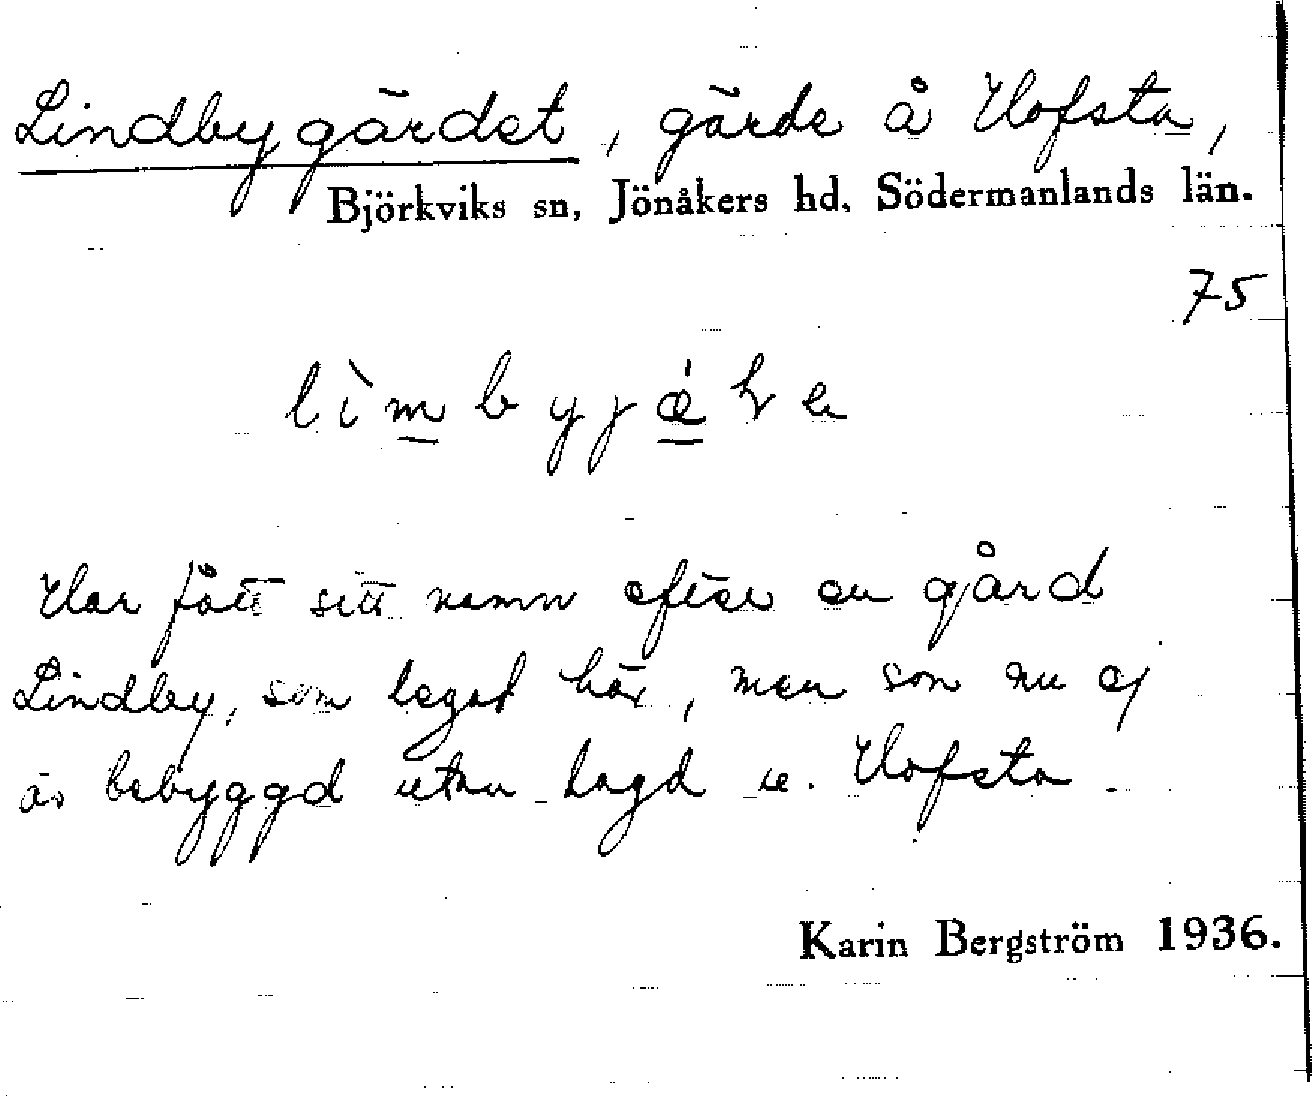 Lindbygärdet, gärde å Hofsta,
Björkviks sn, Jönåkers hd, Södermanlands län.
75
Har fått sitt namn efter en gård
Lindby, som legat här, men som nu ej
är bebyggd utan lagd u. Hofsta.
Karin Bergström 1936.